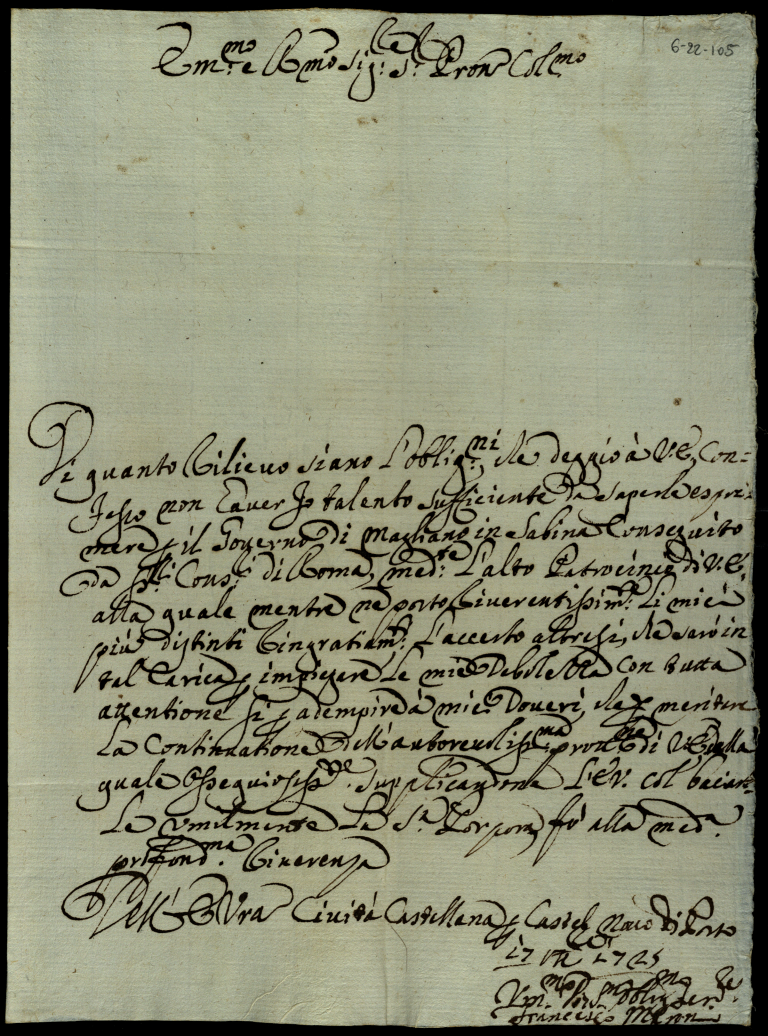 6-22-105
Em.mo e R.mo Sig.r Sig.r Pron Col.mo
Di quanto Rilievo siano l'oblig.ni, che deggio à V.E., Con=
fesso non haver Io talento sufficiente da saperle espri=
mere p il Governo di Magliano in Sabina Conseguito
da Cons. di Roma, med.te l'alto Patrocinio di V.E.
alla quale mentre ne porto Riverentissim.te li miei
più distinti Ringratiam.ti l'accerto altresi, che sarò in
tal Carica p impiegare le mie Debolezze con tutta
attentione si p adempire à miei Doveri, che p meritare
la Continuatione dell'autorevoliss.ma proz.ne di V.E. della
quale Ossequiosiss.te supplicandone l'E.V. col baciar=
Le umilmente la S.a Porpora, fò alla med.a
profond.ma Riverenza
Dell'E. Vra Civitá Castellana p Castel Novo di Porto
17 1725
Vm.mo Dev.mo Obblig.mo Ser.re
Francesco